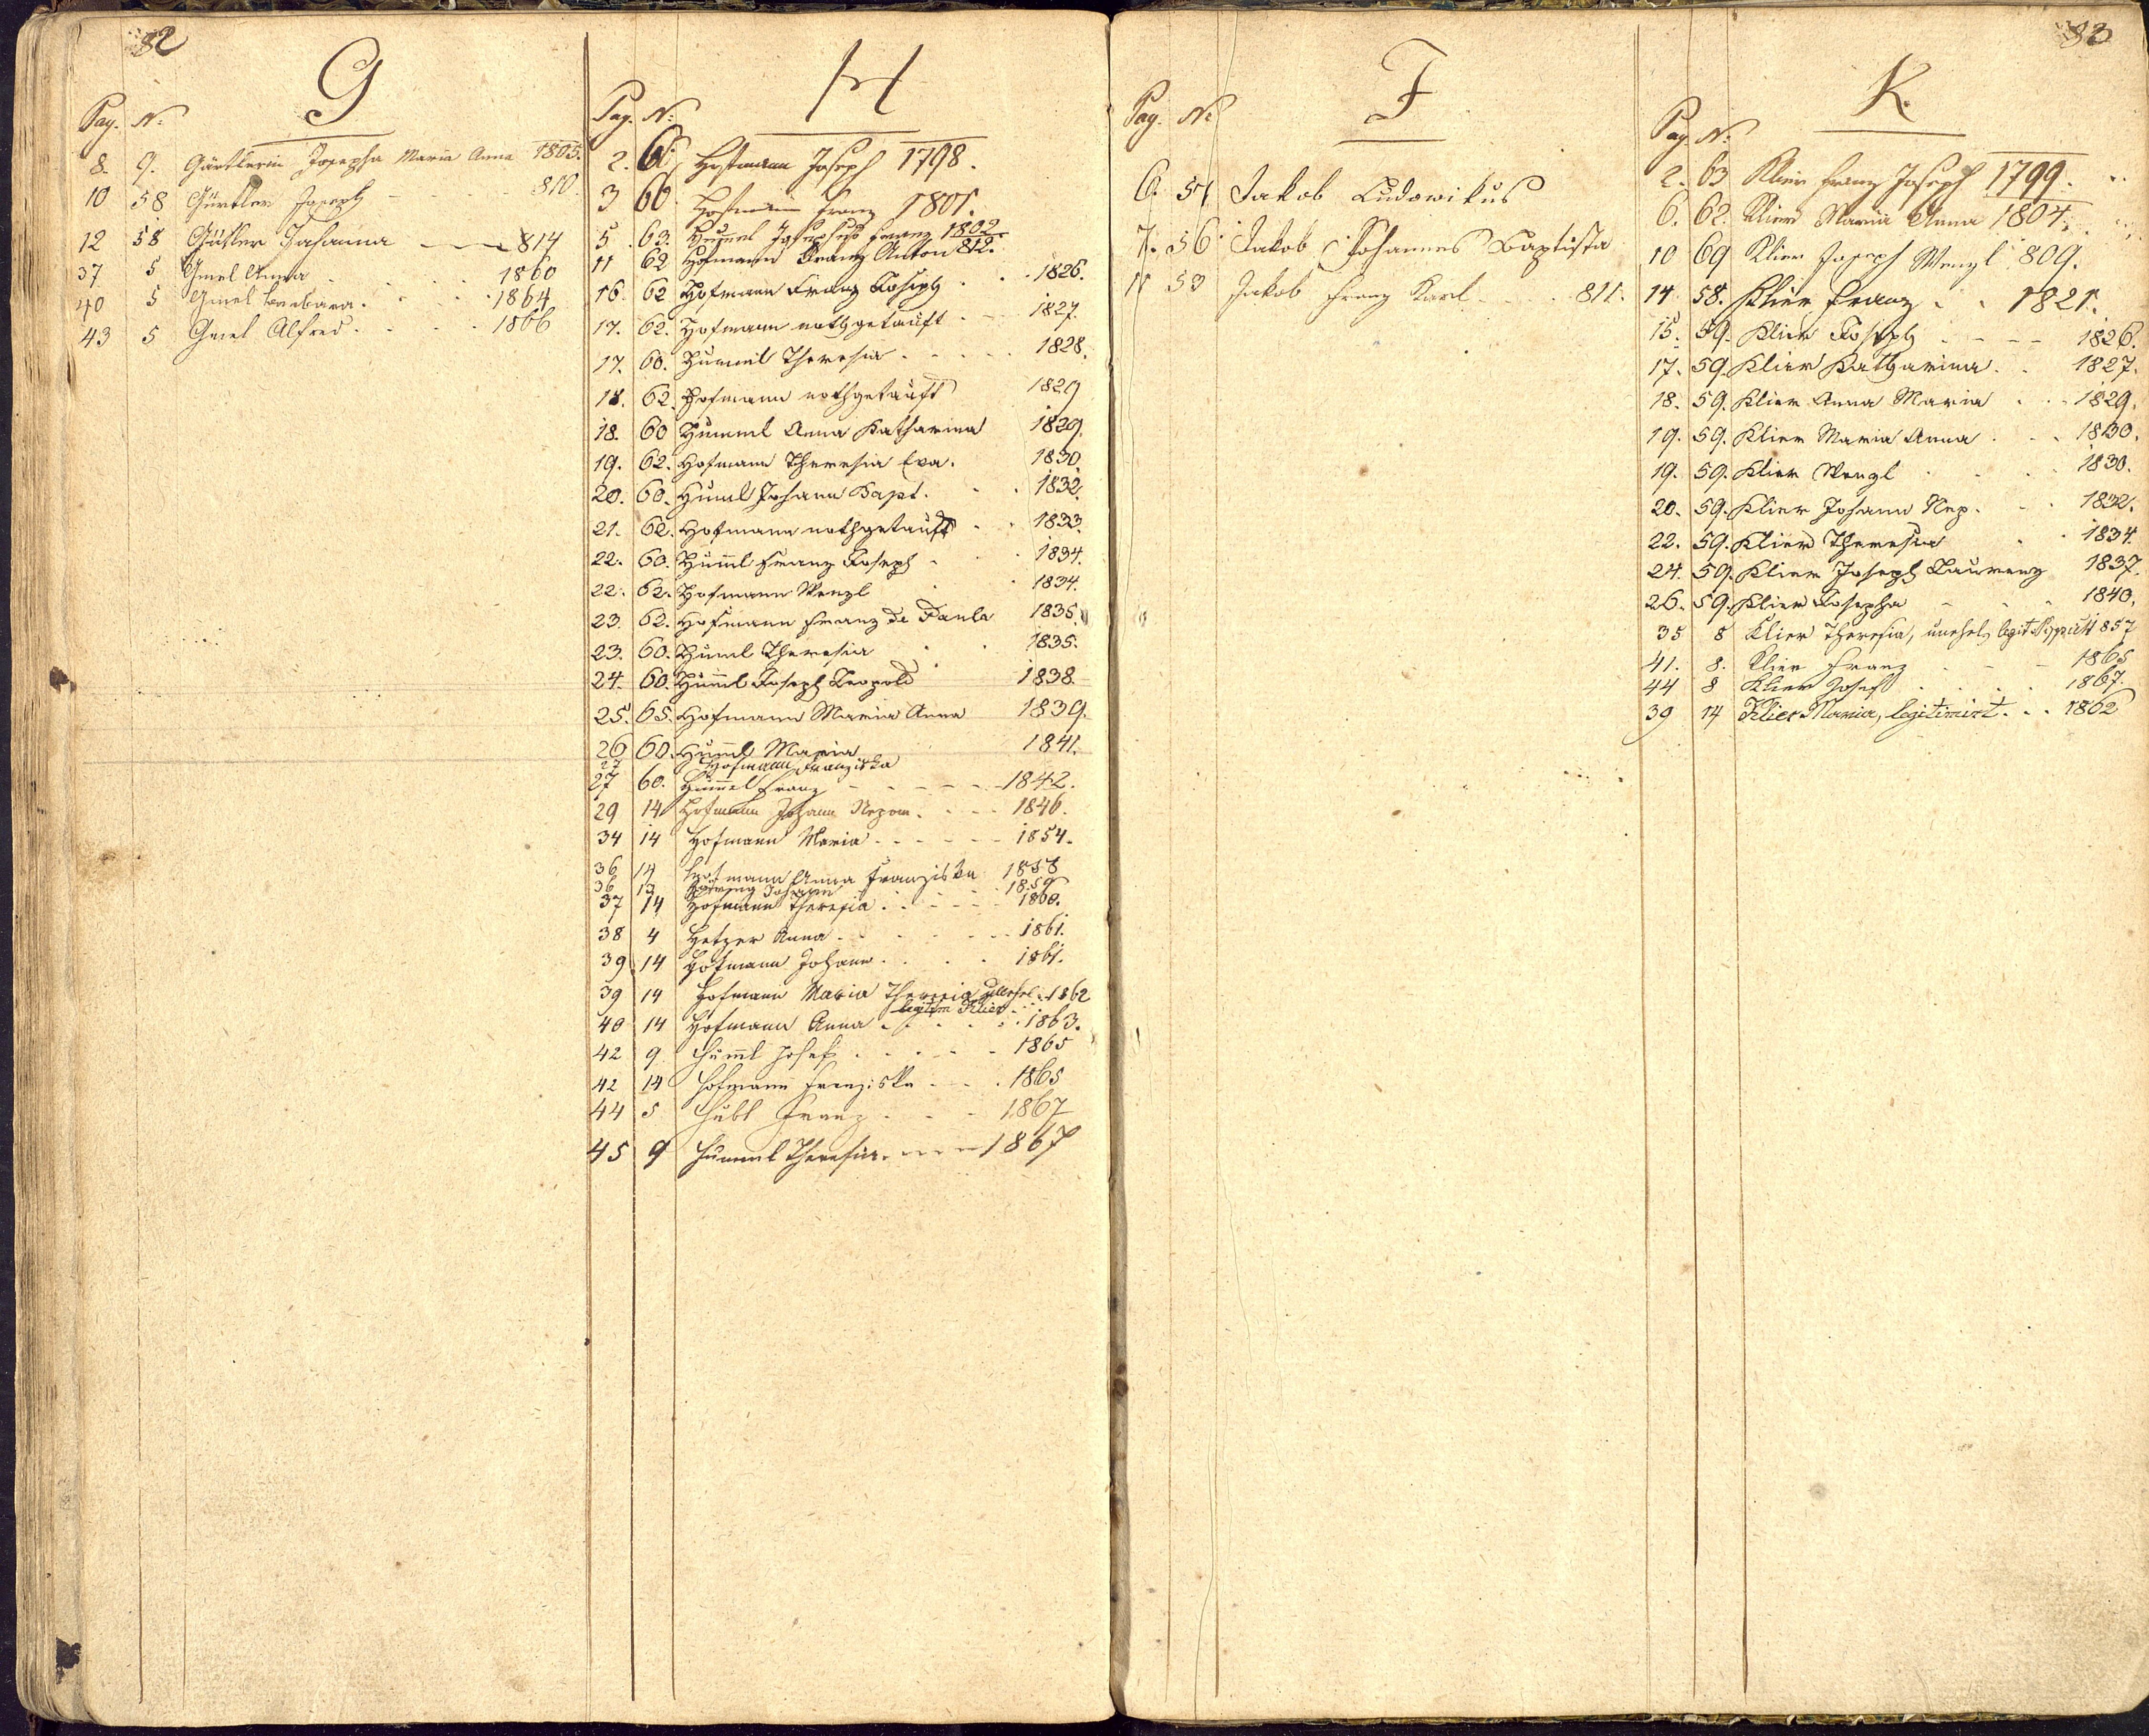 82
G
Pag. N:
8. 9. Gürtlerin Josepha Maria Anna 1805.
10 58 Gürtler Joseph - - - 810.
12 58 Gürtler Johanna - - - 814
37 5 Gmel Anna . . . 1860
40 5 Gmel Barbara . . . 1864
43 5 Gmel Alfred . . . 1866
H
Pag. N:
2. Hofmann Joseph 1798.
3 60. Hofmann Franz 1801.
5 63. Hummel Josephus Franz 1802.
11 62 Hofmann Franz Anton 812.
16. 62 Hofmann Franz Joseph . . 1826.
17. 62. Hofmann nothgetauft . . 1827.
17. 60. Hummel Theresia . . . . 1828.
18. 62. Hofmann nothgetauft 1829
18. 60 Hummel Anna Katharina 1829.
19. 62. Hofmann Theresia Eva. 1830.
20. 60. Huml Johann Bapt. . . 1832.
21. 62. Hofmann nothgetauft . . 1833.
22. 60. Huml Franz Joseph . . 1834.
22. 62. Hofmann Wenzl . . 1834.
23. 62. Hofmann Franz de Paula 1835.
23. 60. Huml Theresia . . 1835.
24. 60. Huml Joseph Leopold 1838.
25. 65. Hofmann Maria Anna 1839.
26 60. Huml Maria 1841.
27 Hofmann Franziska
27 60. Hummel Franz - - - - - 1842.
29 14 Hofmann Johann Nepom. - - - 1846.
34 14 Hofmann Maria - - - - - 1854.
36 14 Hofmann Anna Franziska 1858
36 13 Johann 1859
37 14 Hofmann Theresia . . . . . 1860.
38 4 Hetzer Anna . . . . . 1861.
39 14 Hofmann Johann . . . . 1861.
39 14 Hofmann Maria Theresia unehel. 1862
legitim Klier
40 14 Hofmann Anna . . . . . 1863.
42 9 Huml Josef . . . . . 1865
42 14 Hofmann Franziska . . . 1865
44 5 Hübl Franz . . . 1867
45 9 Hummel Theresia. - - - 1867
83
J
Pag. N:
6. 51 Jakob Ludowikus
7. 56. Jakob Johannes Baptista
11 53 Jakob Franz Karl - - . 811.
K.
Pag. N:
2. 63 Klier Franz Joseph 1799.
6. 62. Klier Maria Anna 1804.
10 69 Klier Joseph Wenzl 809.
14 58. Klier Franz . . 1821.
15. 59. Klier Joseph - - - - 1826.
17. 59. Klier Katharina. . 1827.
18. 59. Klier Anna Maria . . . 1829.
19. 59. Klier Maria Anna . . . 1830.
19. 59. Klier Wenzl . . . . 1830.
20. 59. Klier Johann Nep. . . 1832.
22. 59. Klier Theresia . . 1834.
24. 59. Klier Joseph Laurenz 1837.
26. 59. Klier Josepha - - - 1840.
35 8 Klier Theresia, unehel, legit. 857
41. 8. Klier Franz . - - 1865
44 8 Klier Josef . . . . 1867.
39 14 Klier Maria, legitimirt. . . 1862